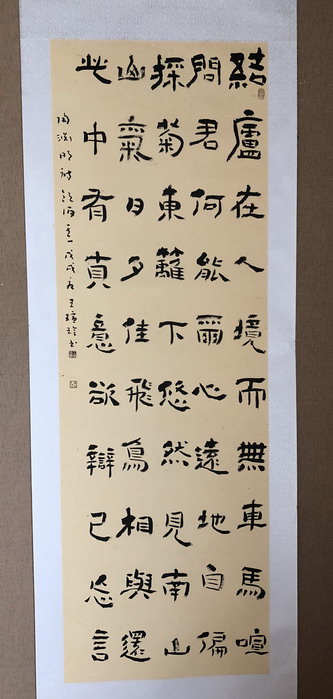 結廬在人境而無車馬喧
問君何能爾心遠地自偏
採菊東籬下悠然見南山
山氣日夕佳飛鳥相與還
此中有真意欲辯已忘言
陶淵明詩飲酒 戊戌 王